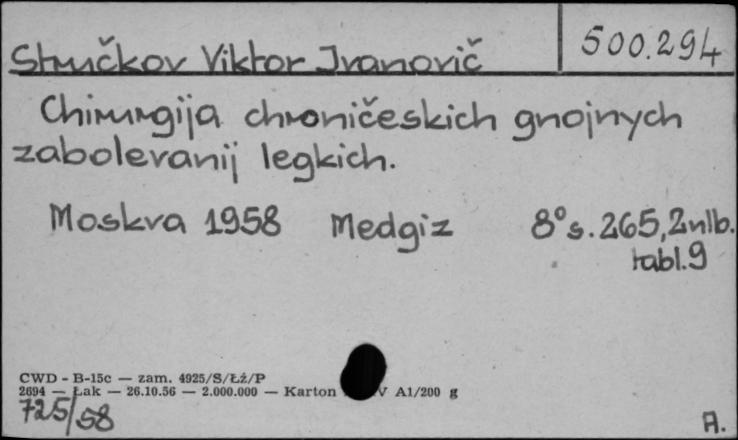 500.294
Stručkov Viktor Ivanovič
Chirurgija chroničeskich gnojnych
zabolevanij legkich.
Moskva 1958 Medgiz 8° s. 265, 2 nlb.
tabl. 9
CWD - B-15c — zam. 4925/S/Łż/P
2694 — Łak — 26.10.56 — 2.000.000 — Karton V A1/200 g
725/58
A.